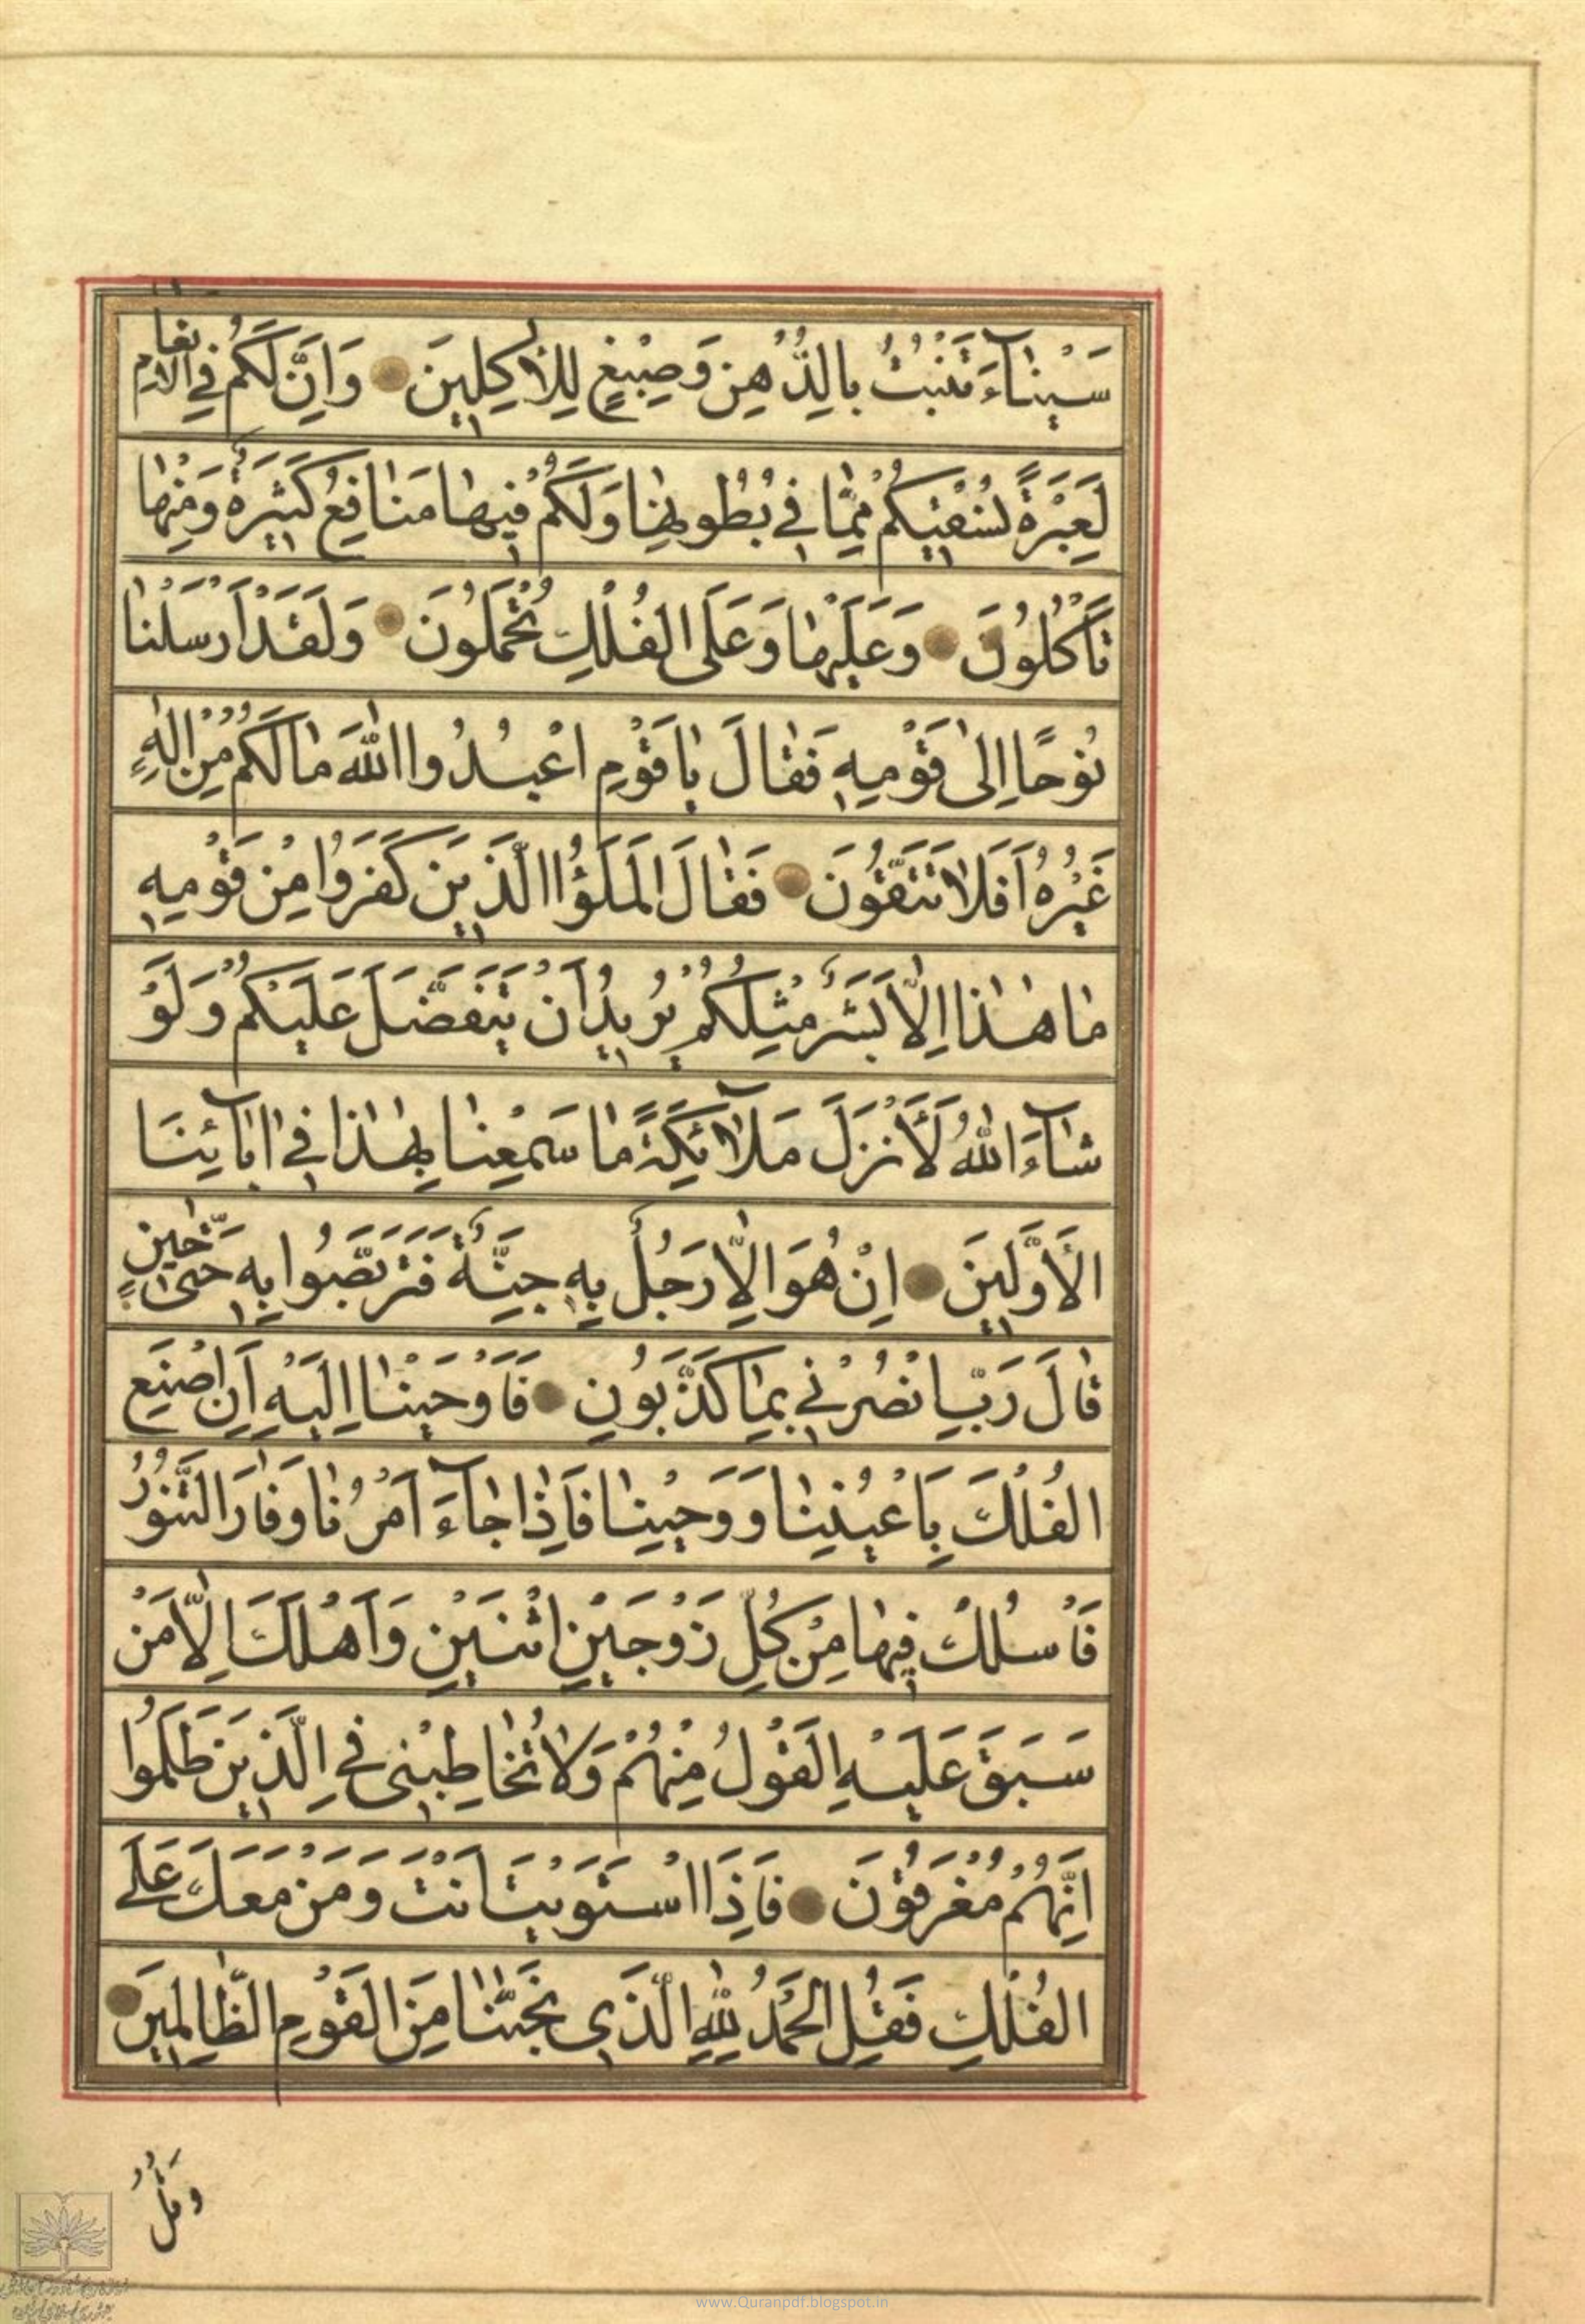 سَيْنَآءَ تَنْبُتُ بِالدُّهْنِ وَصِبْغٍ لِلْاٰكِلِينَ وَاِنَّ لَكُمْ فِي الْاَنْعَامِ
لَعِبْرَةً نُسْقِيكُمْ مِمَّا فِي بُطُونِهَا وَلَكُمْ فِيهَا مَنَافِعُ كَثِيرَةٌ وَمِنْهَا
تَأْكُلُونَ وَعَلَيْهَا وَعَلَى الْفُلْكِ تُحْمَلُونَ وَلَقَدْ اَرْسَلْنَا
نُوحًا اِلٰى قَوْمِهِ فَقَالَ يَا قَوْمِ اعْبُدُوا اللّٰهَ مَا لَكُمْ مِنْ اِلٰهٍ
غَيْرُهُ اَفَلَا تَتَّقُونَ فَقَالَ الْمَلَؤُا الَّذِينَ كَفَرُوا مِنْ قَوْمِهِ
مَا هٰذَا اِلَّا بَشَرٌ مِثْلُكُمْ يُرِيدُ اَنْ يَتَفَضَّلَ عَلَيْكُمْ وَلَوْ
شَآءَ اللّٰهُ لَأَنْزَلَ مَلَآئِكَةً مَا سَمِعْنَا بِهٰذَا فِي اٰبَآئِنَا
الْأَوَّلِينَ اِنْ هُوَ اِلَّا رَجُلٌ بِهِ جِنَّةٌ فَتَرَبَّصُوا بِهِ حَتّٰى حِينٍ
قَالَ رَبِّ انْصُرْنِي بِمَا كَذَّبُونِ فَاَوْحَيْنَا اِلَيْهِ اَنِ اصْنَعِ
الْفُلْكَ بِاَعْيُنِنَا وَوَحْيِنَا فَاِذَا جَآءَ اَمْرُنَا وَفَارَ التَّنُّورُ
فَاسْلُكْ فِيهَا مِنْ كُلٍّ زَوْجَيْنِ اثْنَيْنِ وَاَهْلَكَ اِلَّا مَنْ
سَبَقَ عَلَيْهِ الْقَوْلُ مِنْهُمْ وَلَا تُخَاطِبْنِي فِي الَّذِينَ ظَلَمُوا
اِنَّهُمْ مُغْرَقُونَ فَاِذَا اسْتَوَيْتَ اَنْتَ وَمَنْ مَعَكَ عَلَى
الْفُلْكِ فَقُلِ الْحَمْدُ لِلّٰهِ الَّذِي نَجّٰينَا مِنَ الْقَوْمِ الظَّالِمِينَ
وَقُلْ
www.Quranpdf.blogspot.in